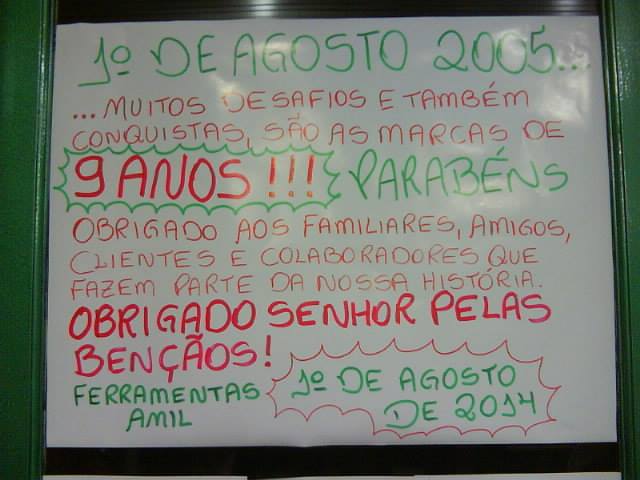 1º DE AGOSTO 2005...
...MUITOS DESAFIOS E TAMBÉM
CONQUISTAS, SÃO AS MARCAS DE
9 ANOS!!! PARABÉNS
OBRIGADO AOS FAMILIARES, AMIGOS,
CLIENTES E COLABORADORES QUE
FAZEM PARTE DA NOSSA HISTÓRIA.
OBRIGADO SENHOR PELAS
BENÇÃOS!
FERRAMENTAS
AMIL
1º DE AGOSTO
DE 2014